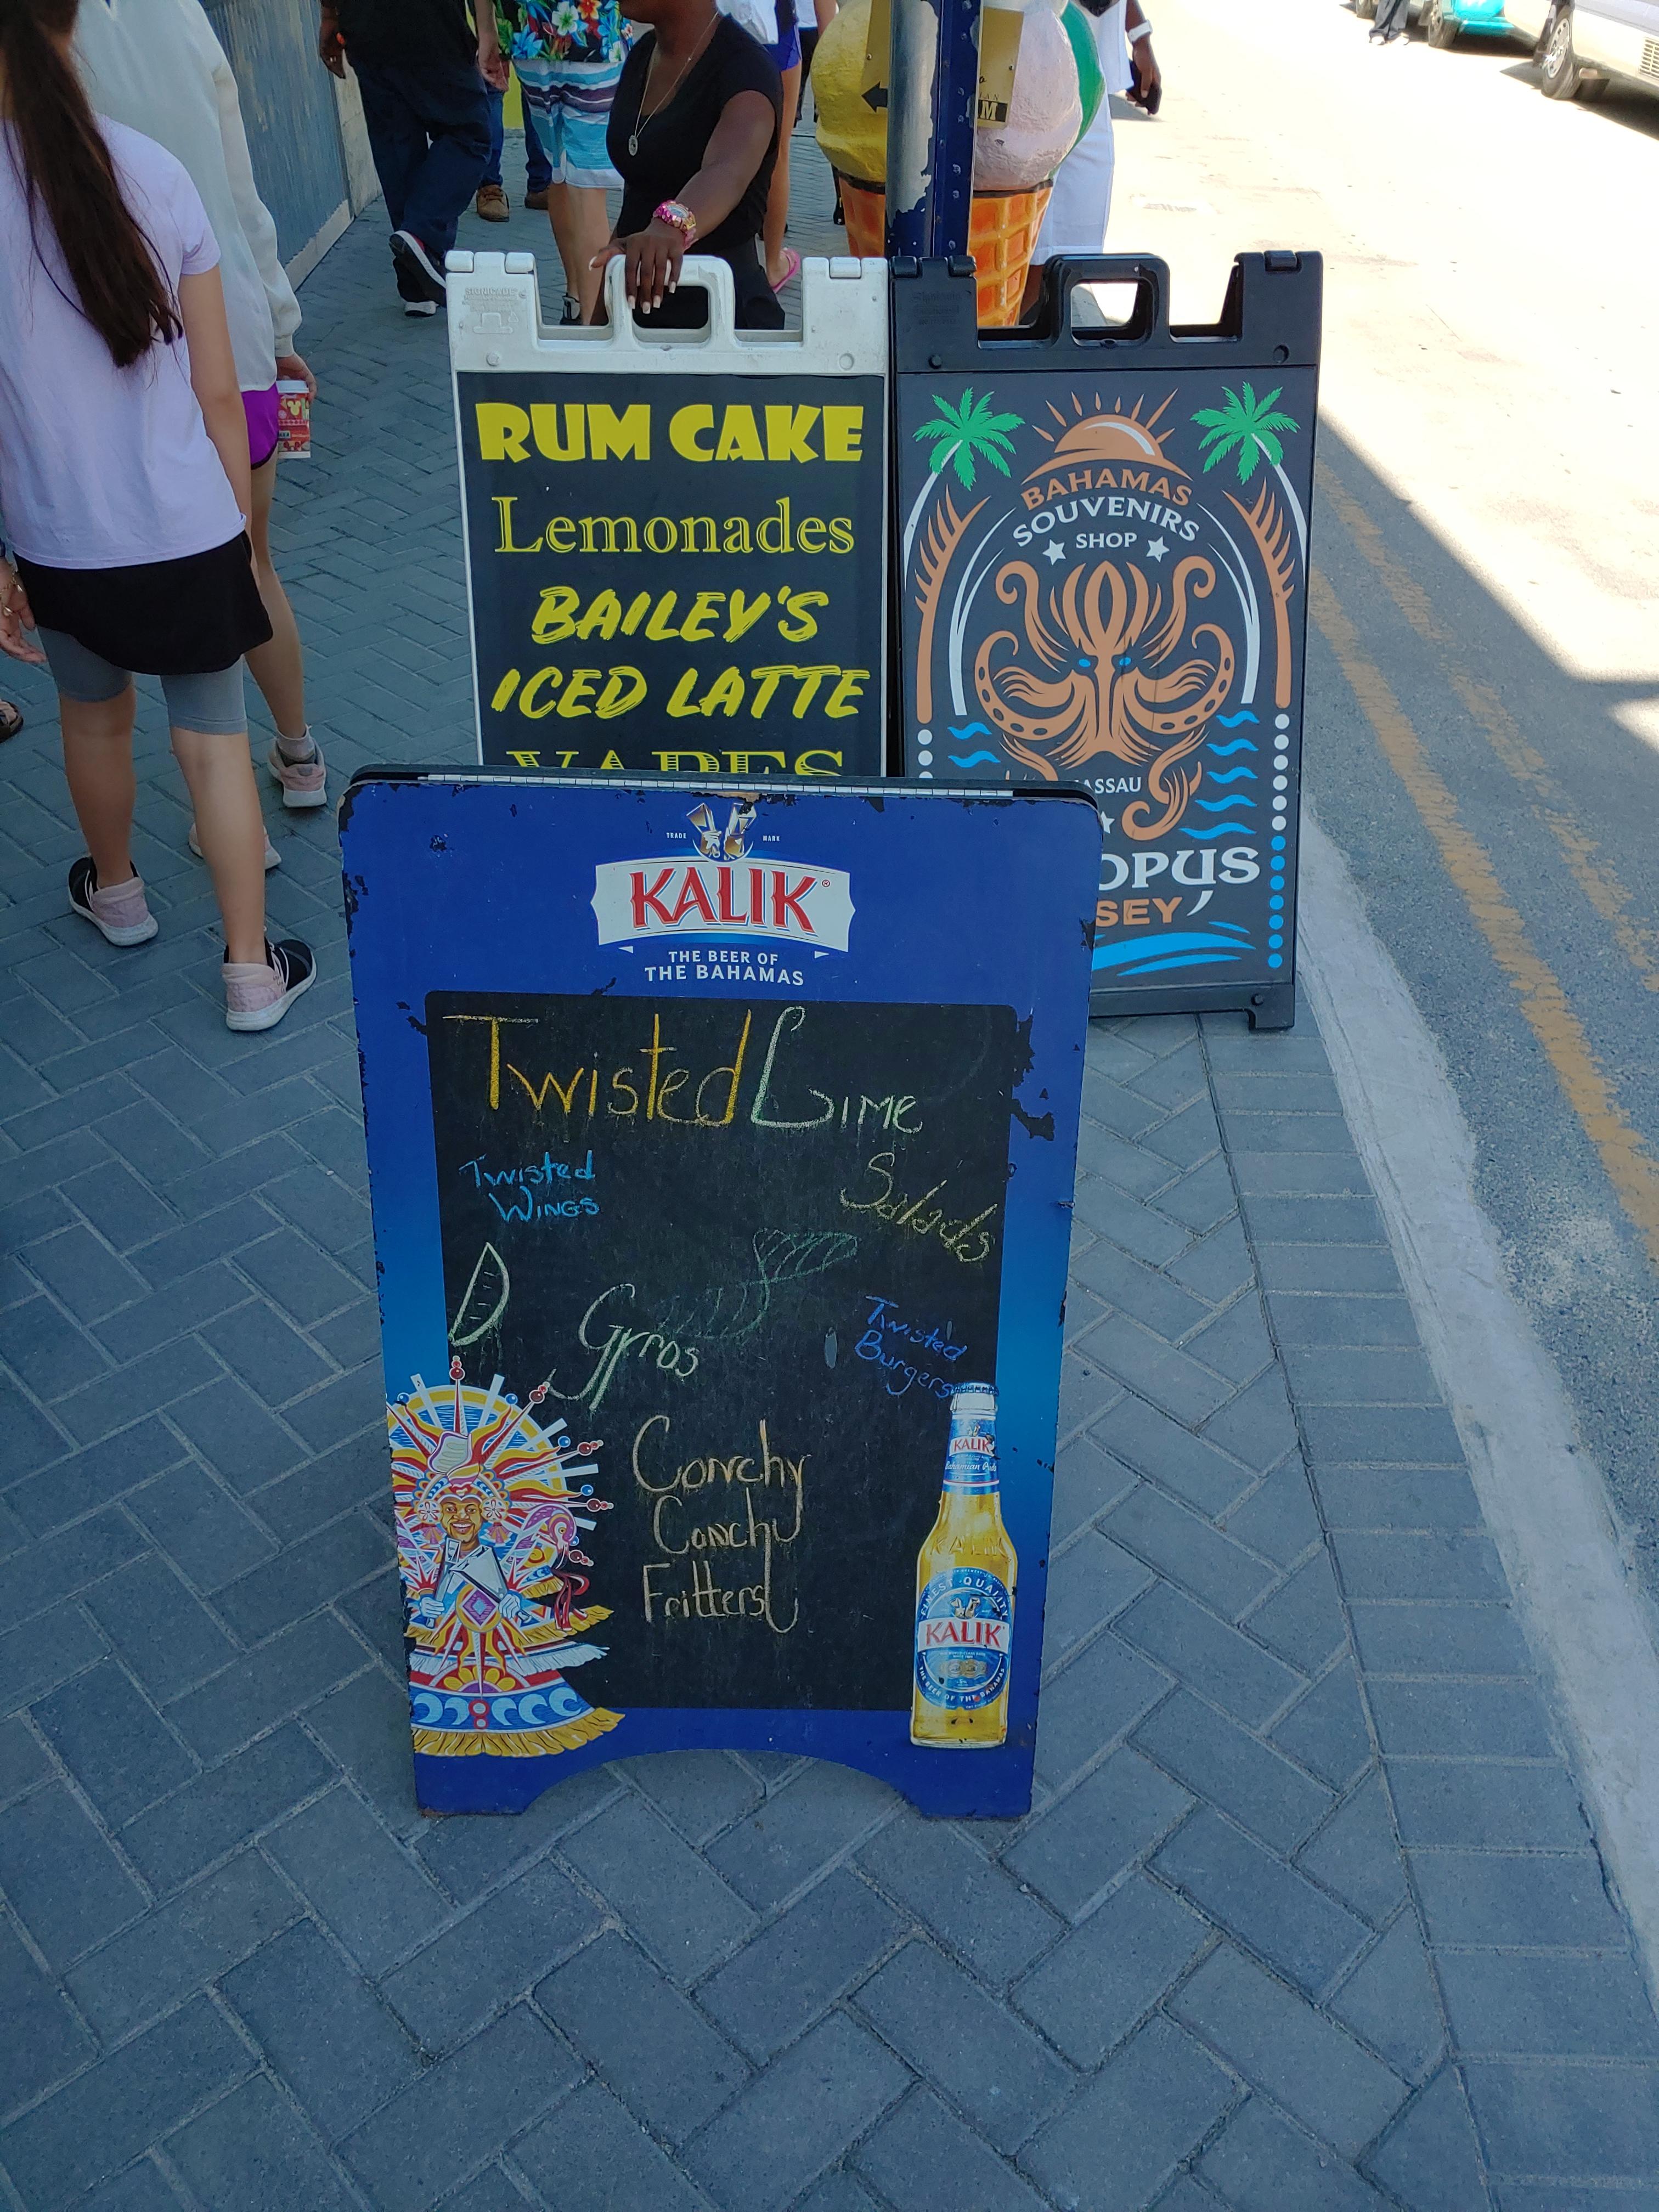 RUM CAKE
Lemonades
BAILEY'S
ICED LATTE
VAPES
BAHAMAS
SOUVENIRS
SHOP
ASSAU
OPUS
SEY
TRADE MARK
KALIK
THE BEER OF
THE BAHAMAS
Twisted Lime
Twisted
Wings
Salads
Gyros
Twisted
Burgers
Conchy
Conchy
Fritters
KALIK
KALIK
FINEST QUALITY
KALIK
THE BEER OF THE BAHAMAS